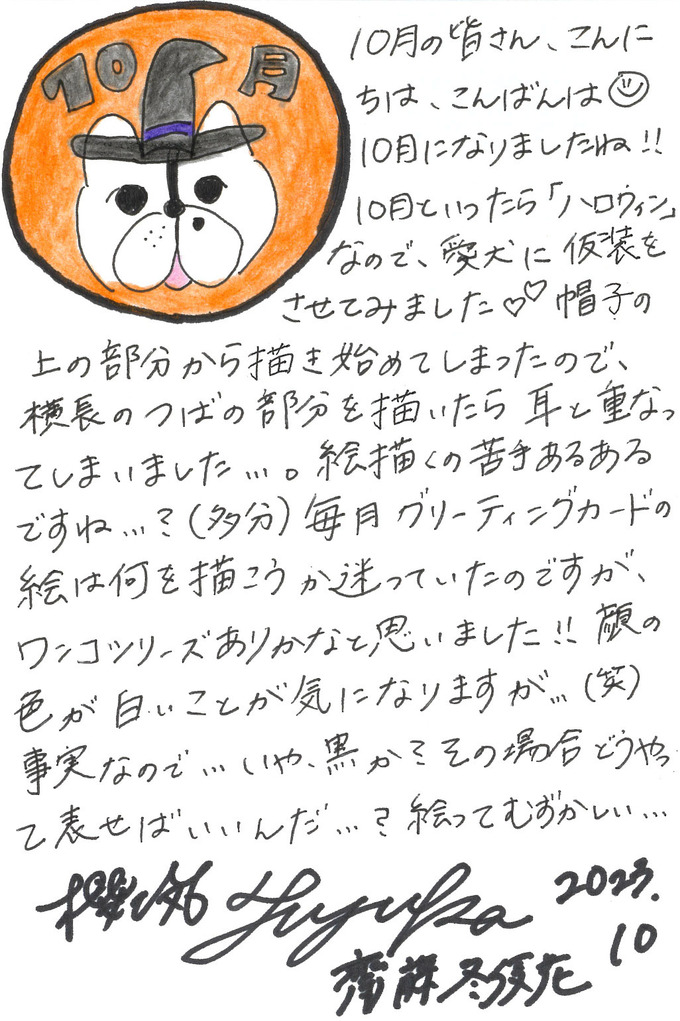 10月
10月の皆さん、こんに
ちは、こんばんは☺
10月になりましたね!!
10月といったら「ハロウィン」
なので、愛犬に仮装を
させてみました♡♡ 帽子の
上の部分から描き始めてしまったので、
横長のつばの部分を描いたら耳と重なっ
てしまいました…。絵描くの苦手あるある
ですね…?(多分)毎月グリーティングカードの
絵は何を描こうか迷っていたのですが、
ワンコシリーズありかなと思いました!!顔の
色が白いことが気になりますが…(笑)
事実なので…いや、黒か?その場合どうやっ
て表せばいいんだ…?絵ってむずかしい…
2023.
10